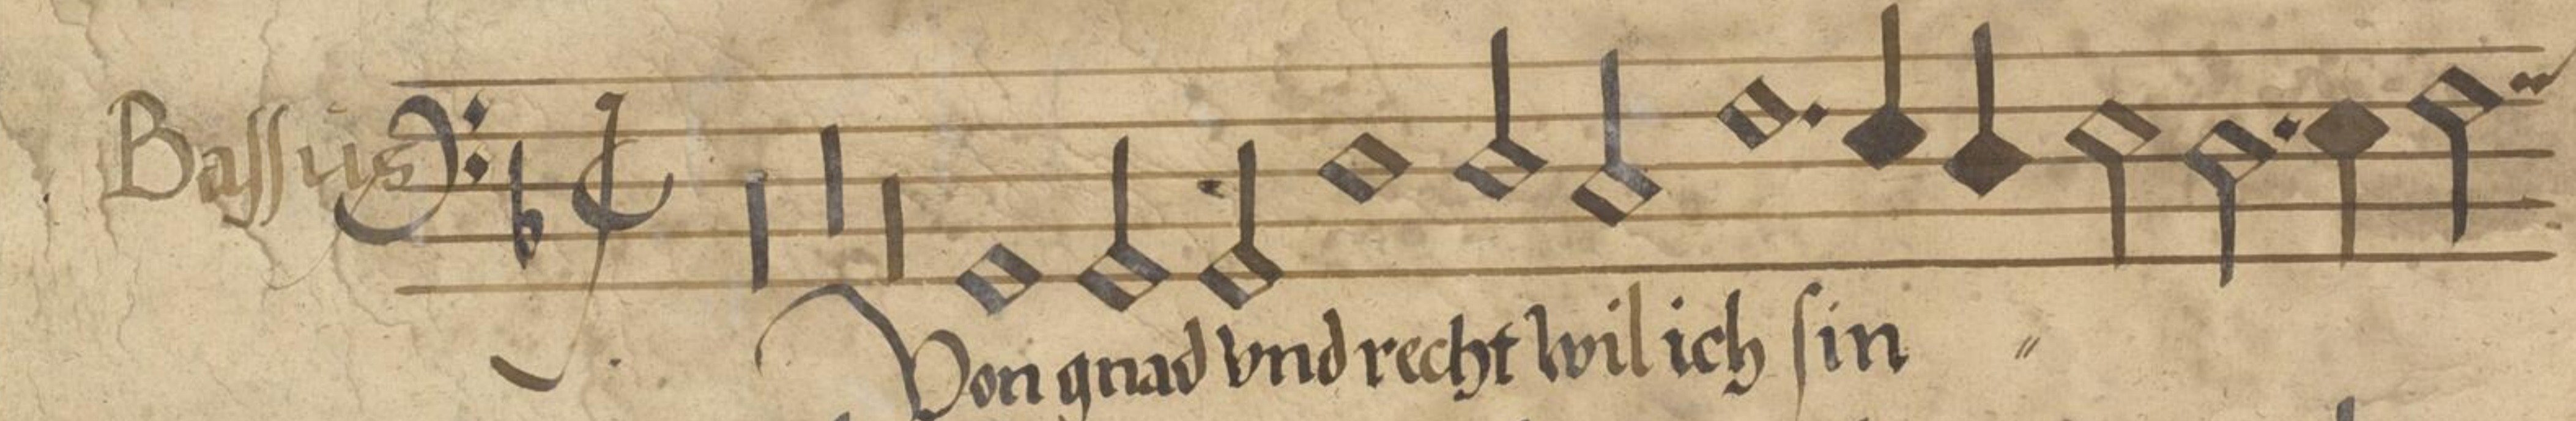 Bassus
Von gnad vnd recht wil ich sin